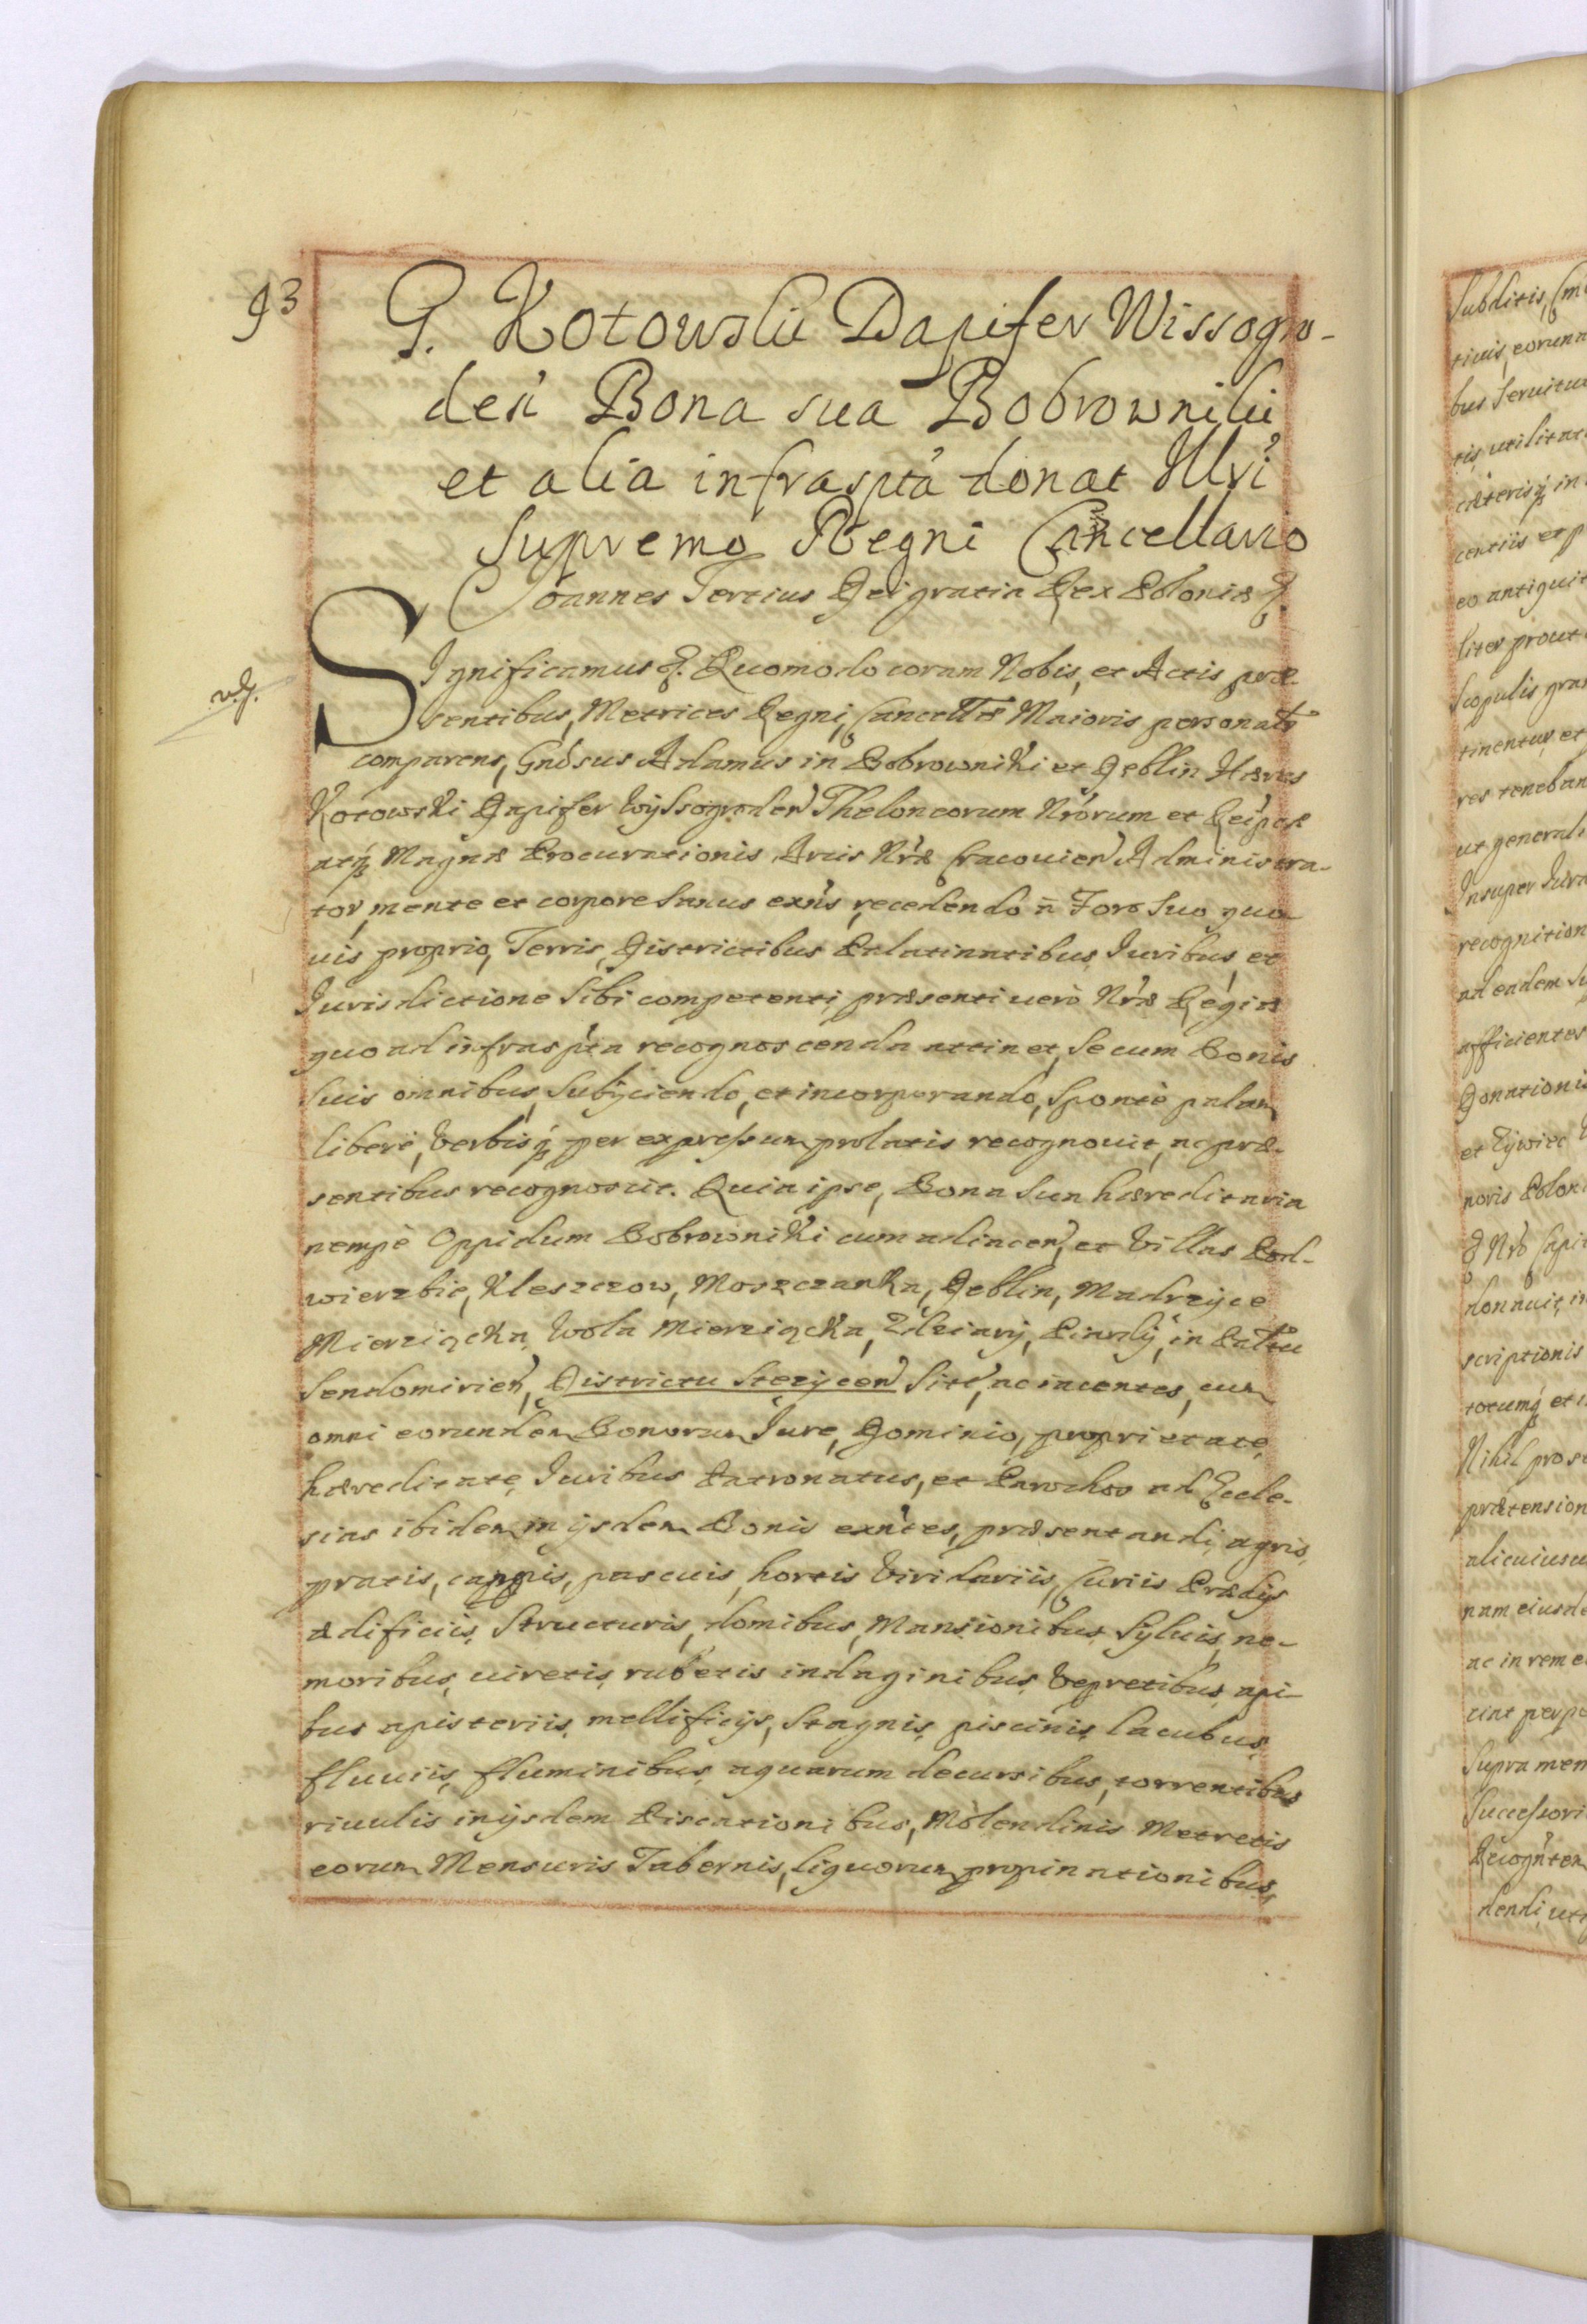 93
G. Kotowski Dapifer Wissogro-
den̄ Bona sua Bobrowniki
et alia infrasptā donat Illri
Supremo Regni Cancellario
Joannes Tertius Dei gratia Rex Poloniæ &.
Significamus &. Quomodo coram Nobis, et Actis præ-
sentibus, Metrices Regni, Cancellæ Maioris personalr
comparens, Gnosus Adamus in Bobrowniki et Deblin Hæres
Kotowski Dapifer Wyssogroden Theloneorum Nrorum et Reipcæ
atq Magnæ Procurationis Arcis Nræ Cracovien Administra-
tor, mente et corpore sanus exns, recedendo n̄ Foro suo quo-
vis proprio, Terris, Districtibus Palatinatibus Iuribus, et
Iurisdictione sibi competenti, præsenti vero Nræ Regiæ
quo ad infrasptā recognoscenda attinet, se cum Bonis
suis omnibus, subijciendo, et incorporando, sponte palam
libere, verbisq per expressum prolatis recognovit, ac præ-
sentibus recognoscit. Quia ipse, Bona sua hæreditaria
nempe Oppidum Bobrowniki cum adiacen, et Villas Pod-
wierzbie, Kleszczow, Moszczanka, Deblin, Madrzyce
Mierziączka, Wola Mierziącka, Zdziary, Piardy, in Paltu
Sendomirien, Districtu Stezycen Site, ac iacentes, cum
omni eorundem Bonorum Iure, Dominio, proprietate,
hæreditate, Iuribus Patronatus, et Parochos ad Eccle-
sias ibidem in ijsdem Bonis exntes, præsentandi, agris,
pratis, campis, pascuis, hortis Viridariis, Curiis Prædijs
ædificiis, Structuris, domibus, Mansionibus, Sylvis, ne-
moribus, viretis, rubetis indaginibus, Vepretibus, api-
bus apisteriis, mellificijs, Stagnis, piscinis, Lacubus,
fluviis, fluminibus, aquarum decursibus, torrentibus
rivulis in ijsdem Piscationibus, Molendinis Metretis
eorum Mensuris Tabernis, liquorum propinationibus,
Subditis,
tiuis, eorun
bus Seruitu
tis, utilitat
cæterisq in
centiis et p
eo antiquit
liter prout
Scopulis gra
tinentur, et
res teneban
ut general
Insuper Iura
recognition
ad eadem su
afficientes
Donationis
et Zywiec
noris Polon
donauit, in
scriptionis
totumq et
Nihil pro s
prætension
alicuiuscu
nam eiusde
ac in rem e
ciat perpe
Supra men
Successori
Recognten
dendi, ut